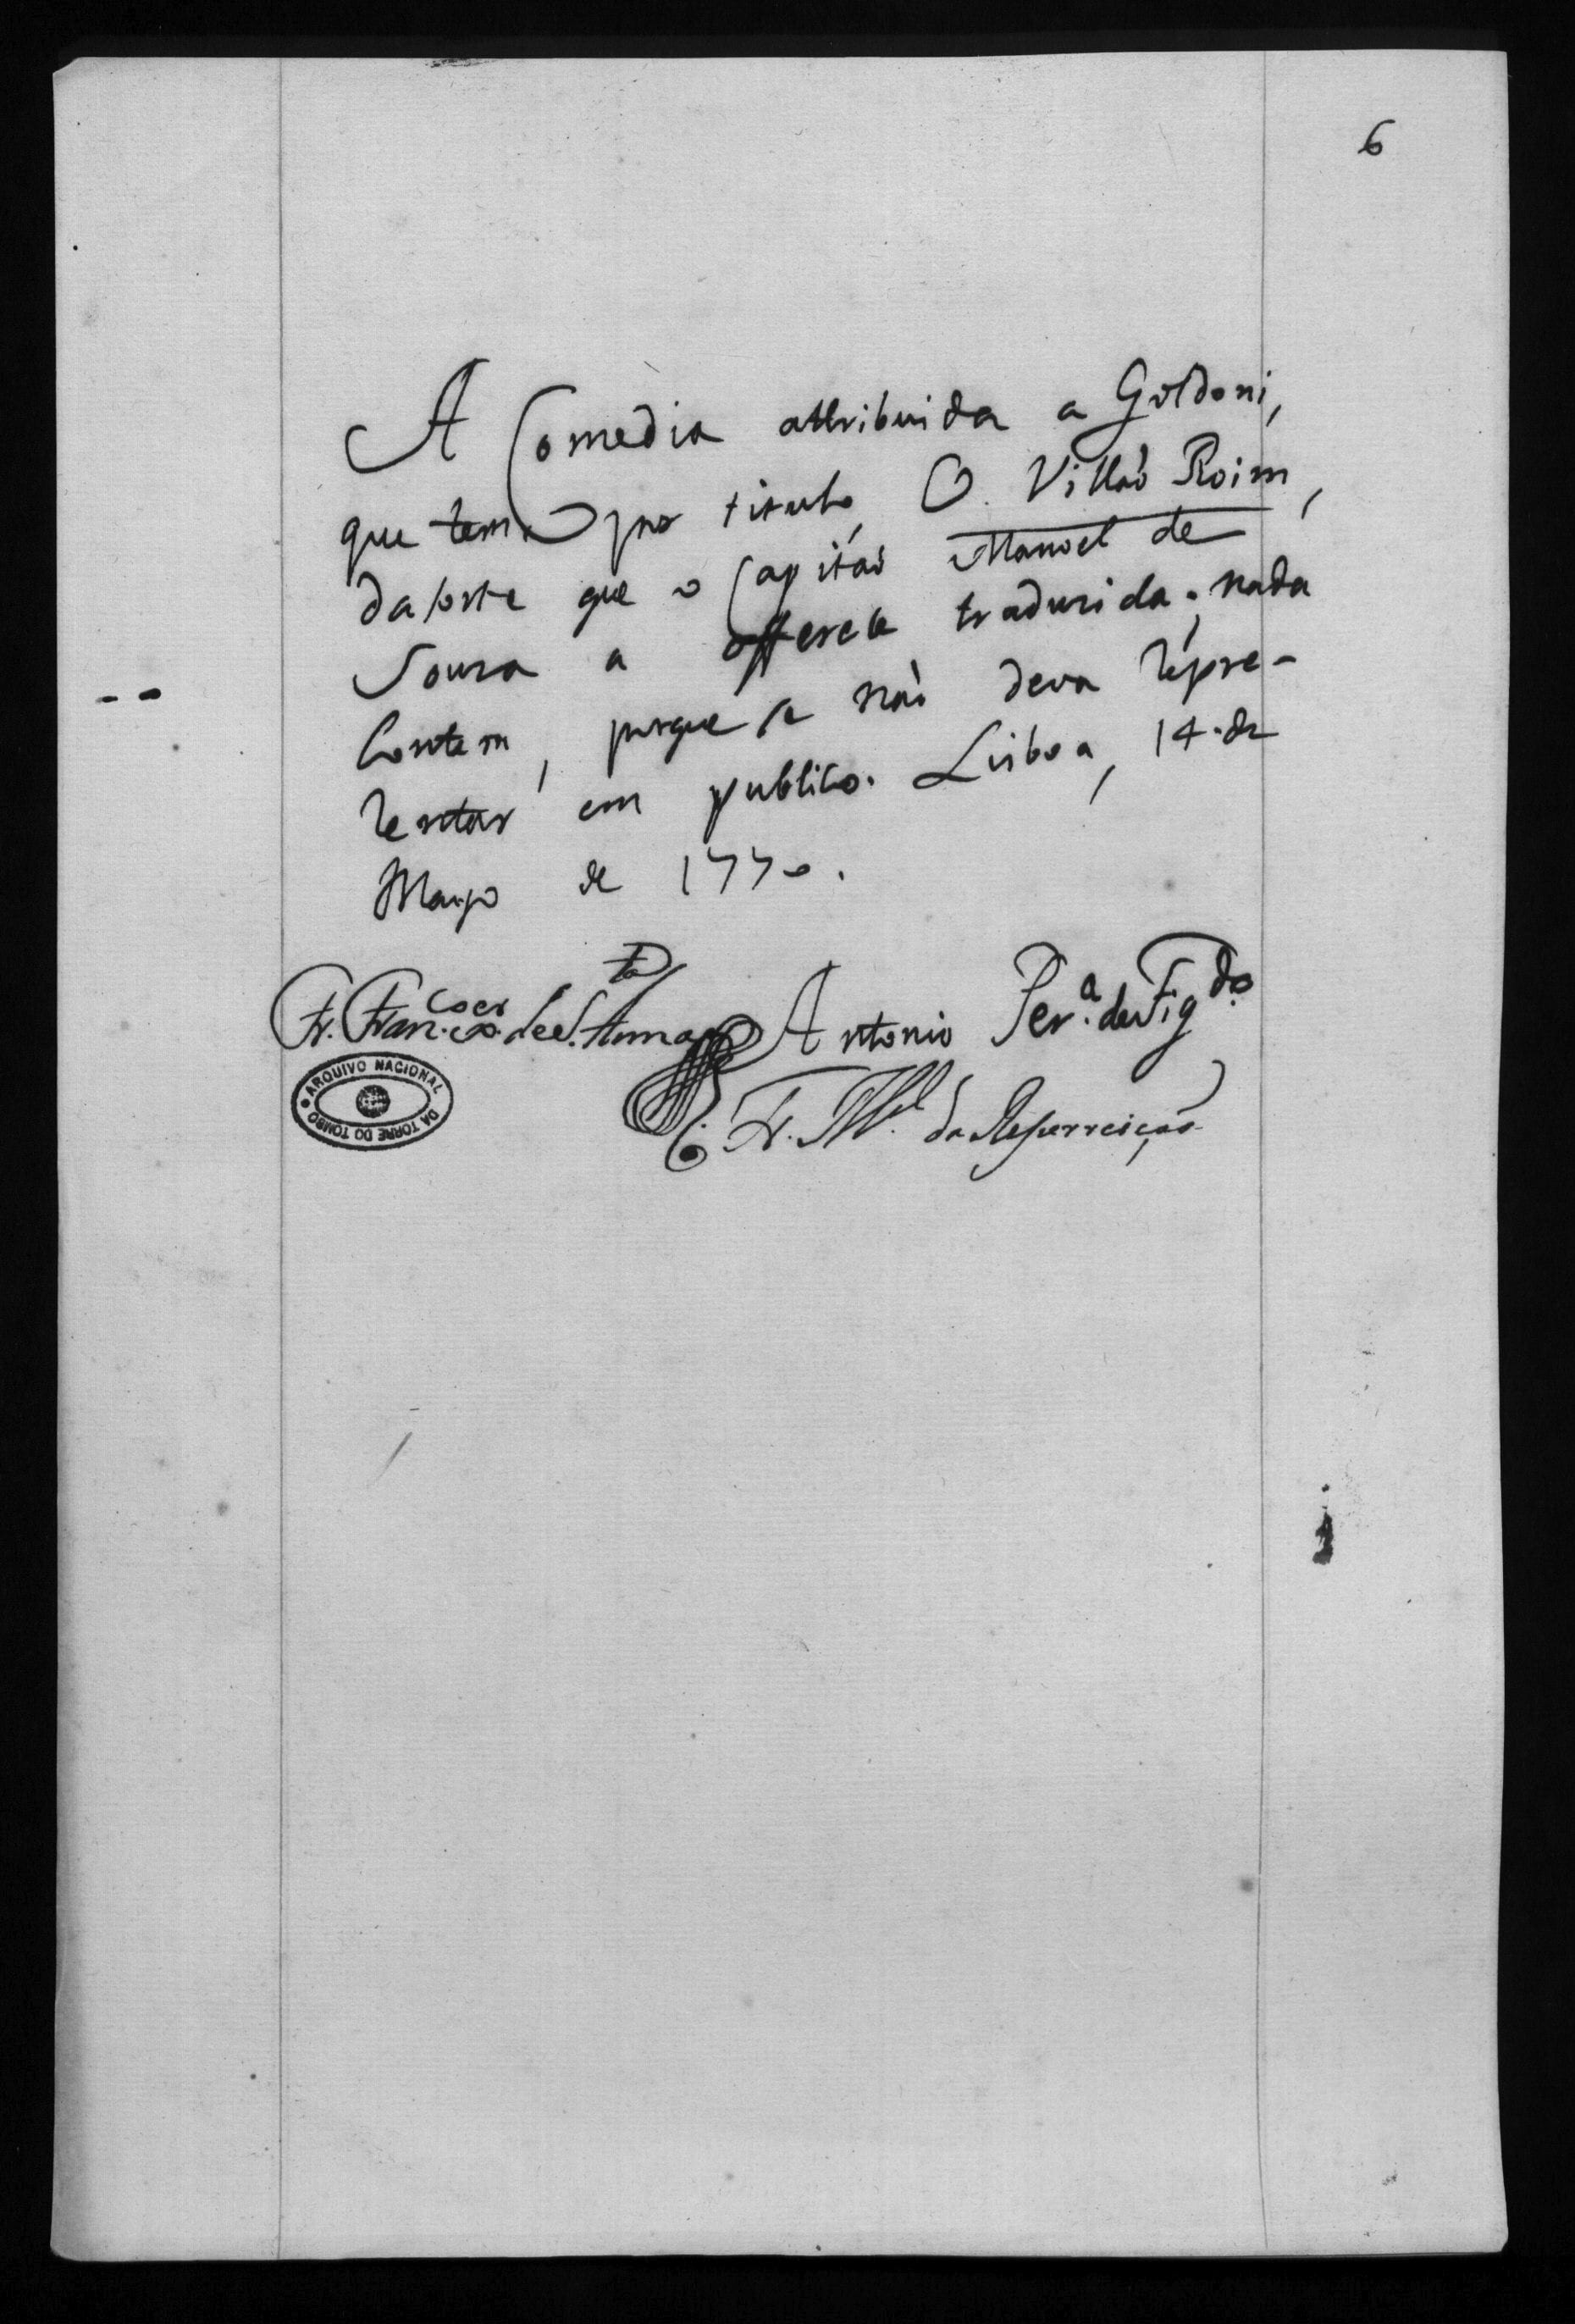 6
A Comedia attribuida a Goldoni,
que tem por titulo, O Villaõ Roim,
da sorte que o Capitaõ Manoel de
Souza a offerece traduzida; nada
contem, porque se naõ deva repre-
zentar em publico. Lisboa, 14 de
Março de 1770.
Fr. Fran.co X.er de S.ta Anna
Antonio Per.a de Fig.do
Fr. M.el da Resurreiçaõ
ARQUIVO NACIONAL
DA TORRE DO TOMBO